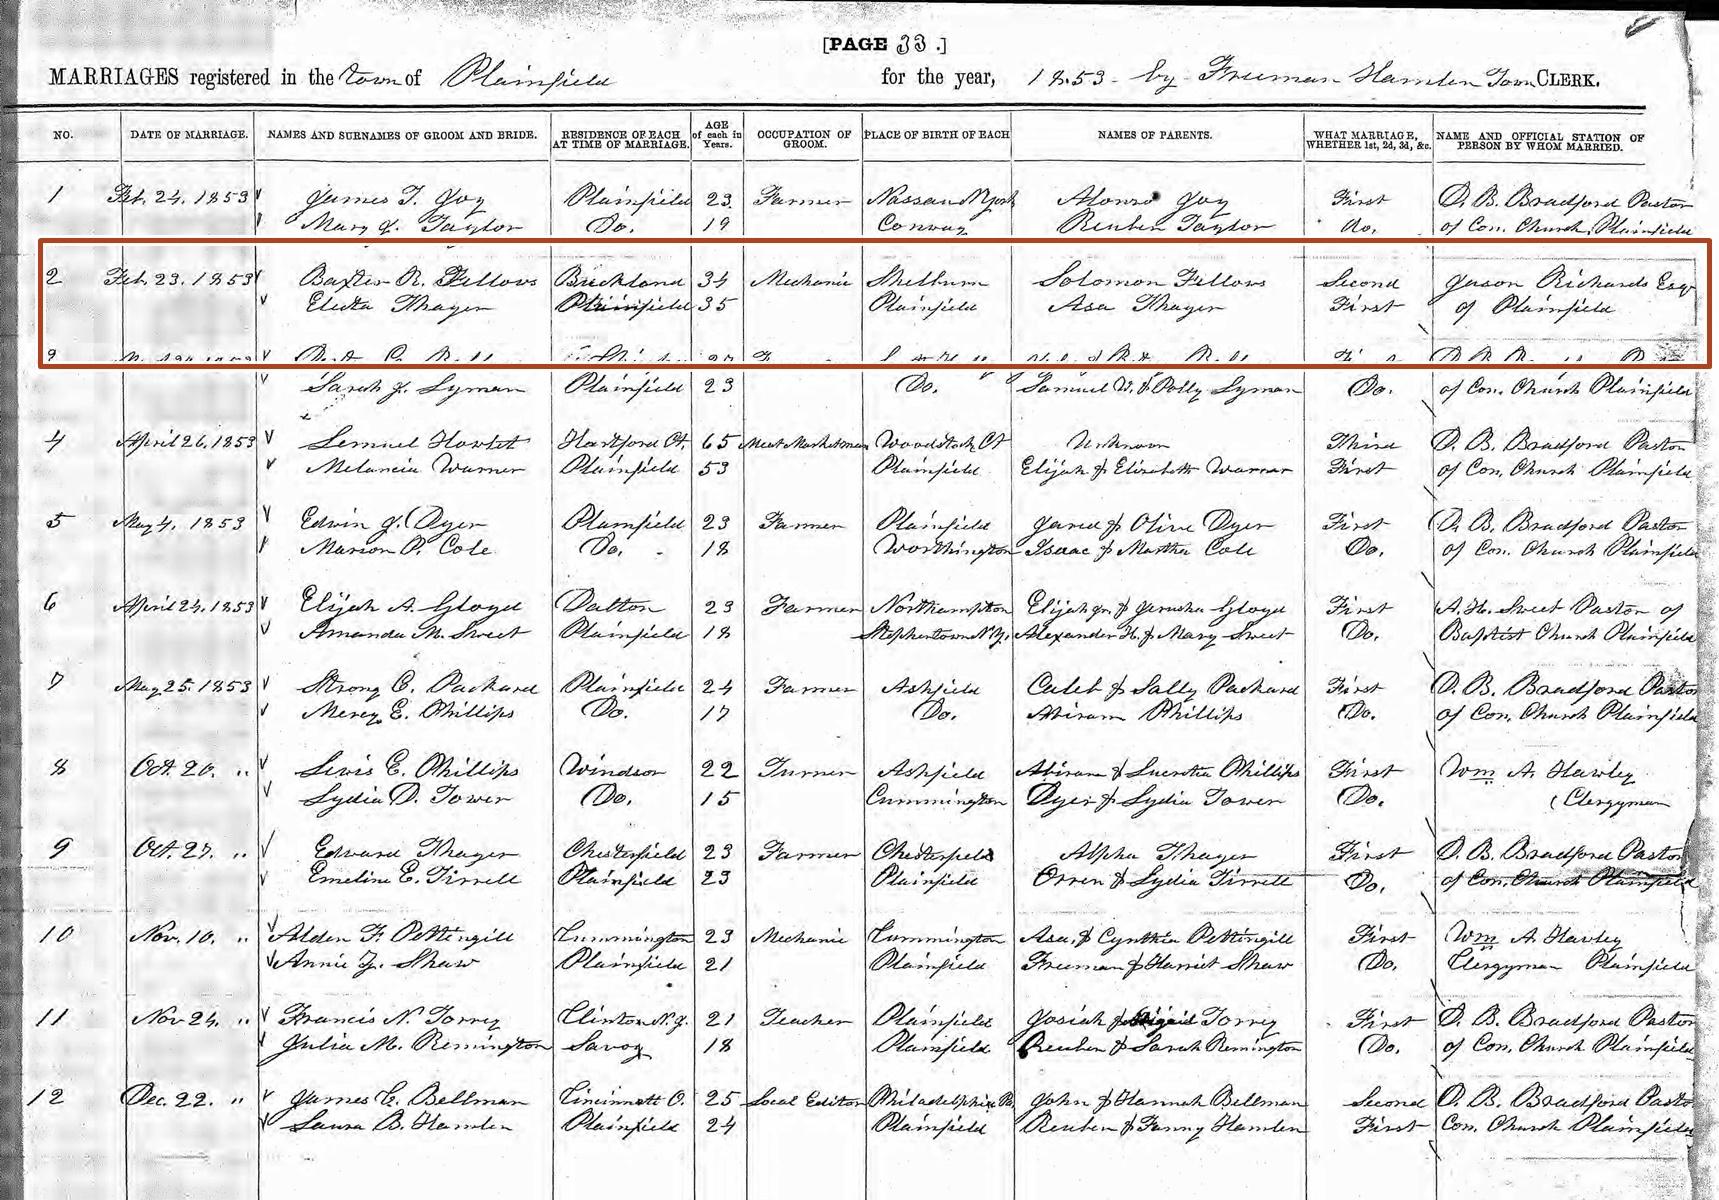 [PAGE 33.]
MARRIAGES registered in the Town of Plainfield for the year, 1853 - by Freeman Hamlen Town CLERK.
NO. DATE OF MARRIAGE. NAMES AND SURNAMES OF GROOM AND BRIDE. RESIDENCE OF EACH AT TIME OF MARRIAGE. AGE of each in Years. OCCUPATION OF GROOM. PLACE OF BIRTH OF EACH NAMES OF PARENTS. WHAT MARRIAGE, WHETHER 1st, 2d, 3d, &c. NAME AND OFFICIAL STATION OF PERSON BY WHOM MARRIED.
1 Feb. 24. 1853 James T. Joy Plainfield 23 Farmer Nassau N York Alonzo Joy First D. B. Bradford Pastor
Mary J. Taylor Do. 19 Conway Reuben Taylor Do. of Con. Church, Plainfield
2 Feb. 23. 1853 Baxter R. Fellows Buckland 34 Mechanic Shelburn Solomon Fellows Second Jason Richards Esqr
Electa Thayer Plainfield 35 Plainfield Asa Thayer First of Plainfield
3
Sarah J. Lyman Plainfield 23 Do. Samuel W. & Polly Lyman Do. of Con. Church Plainfield
4 April 26. 1853 Lemuel Hartford Ct. 65 Meat Marketman Woodstock Ct Unknown Third D. B. Bradford Pastor
Melancia Warner Plainfield 53 Plainfield Elijah & Elizabeth Warner First of Con. Church Plainfield
5 May 4. 1853 Edwin J. Dyer Plainfield 23 Farmer Plainfield Jared & Olive Dyer First D. B. Bradford Pastor
Marion P. Cole Do. 18 Worthington Isaac & Martha Cole Do. of Con. Church Plainfield
6 April 24. 1853 Elijah A. Gloyd Dalton 23 Farmer Northampton Elijah jr. & Jerusha Gloyd First A. H. Sweet Pastor of
Amanda M. Sweet Plainfield 18 Stephentown N.Y. Alexander H. & Mary Sweet Do. Baptist Church Plainfield
7 May 25. 1853 Strong C. Packard Plainfield 24 Farmer Ashfield Caleb & Sally Packard First D. B. Bradford Pastor
Mercy E. Phillips Do. 17 Do. Abiram Phillips Do. of Con. Church Plainfield
8 Oct. 20. " Lewis E. Phillips Windsor 22 Turner Ashfield Abiram & Lucretia Phillips First Wm A. Hawley
Lydia D. Tower Do. 15 Cummington Dyer & Lydia Tower Do. Clergyman
9 Oct. 27. " Edward Thayer Chesterfield 23 Farmer Chesterfield Alpha Thayer First D. B. Bradford Pastor
Emeline E. Tirrell Plainfield 23 Plainfield Orren & Lydia Tirrell Do. of Con. Church Plainfield
10 Nov. 10. " Alden F. Pettingill Cummington 23 Mechanic Cummington Asa, & Cynthia Pettingill First Wm A. Hawley
Annie Z. Shaw Plainfield 21 Plainfield Freeman & Harriet Shaw Do. Clergyman Plainfield
11 Nov 24. " Francis N. Torrey Clinton N.J. 21 Teacher Plainfield Josiah & Torrey First D. B. Bradford Pastor
Julia M. Remington Savoy 18 Plainfield Reuben & Sarah Remington Do. of Con. Church Plainfield
12 Dec. 22. " James C. Bellman Cincinnatt O. 25 Local Editor Philadelphia Pa. John & Hannah Bellman Second D. B. Bradford Pastor
Laura B. Hamlen Plainfield 24 Plainfield Reuben & Fanny Hamlen First Con. Church Plainfield